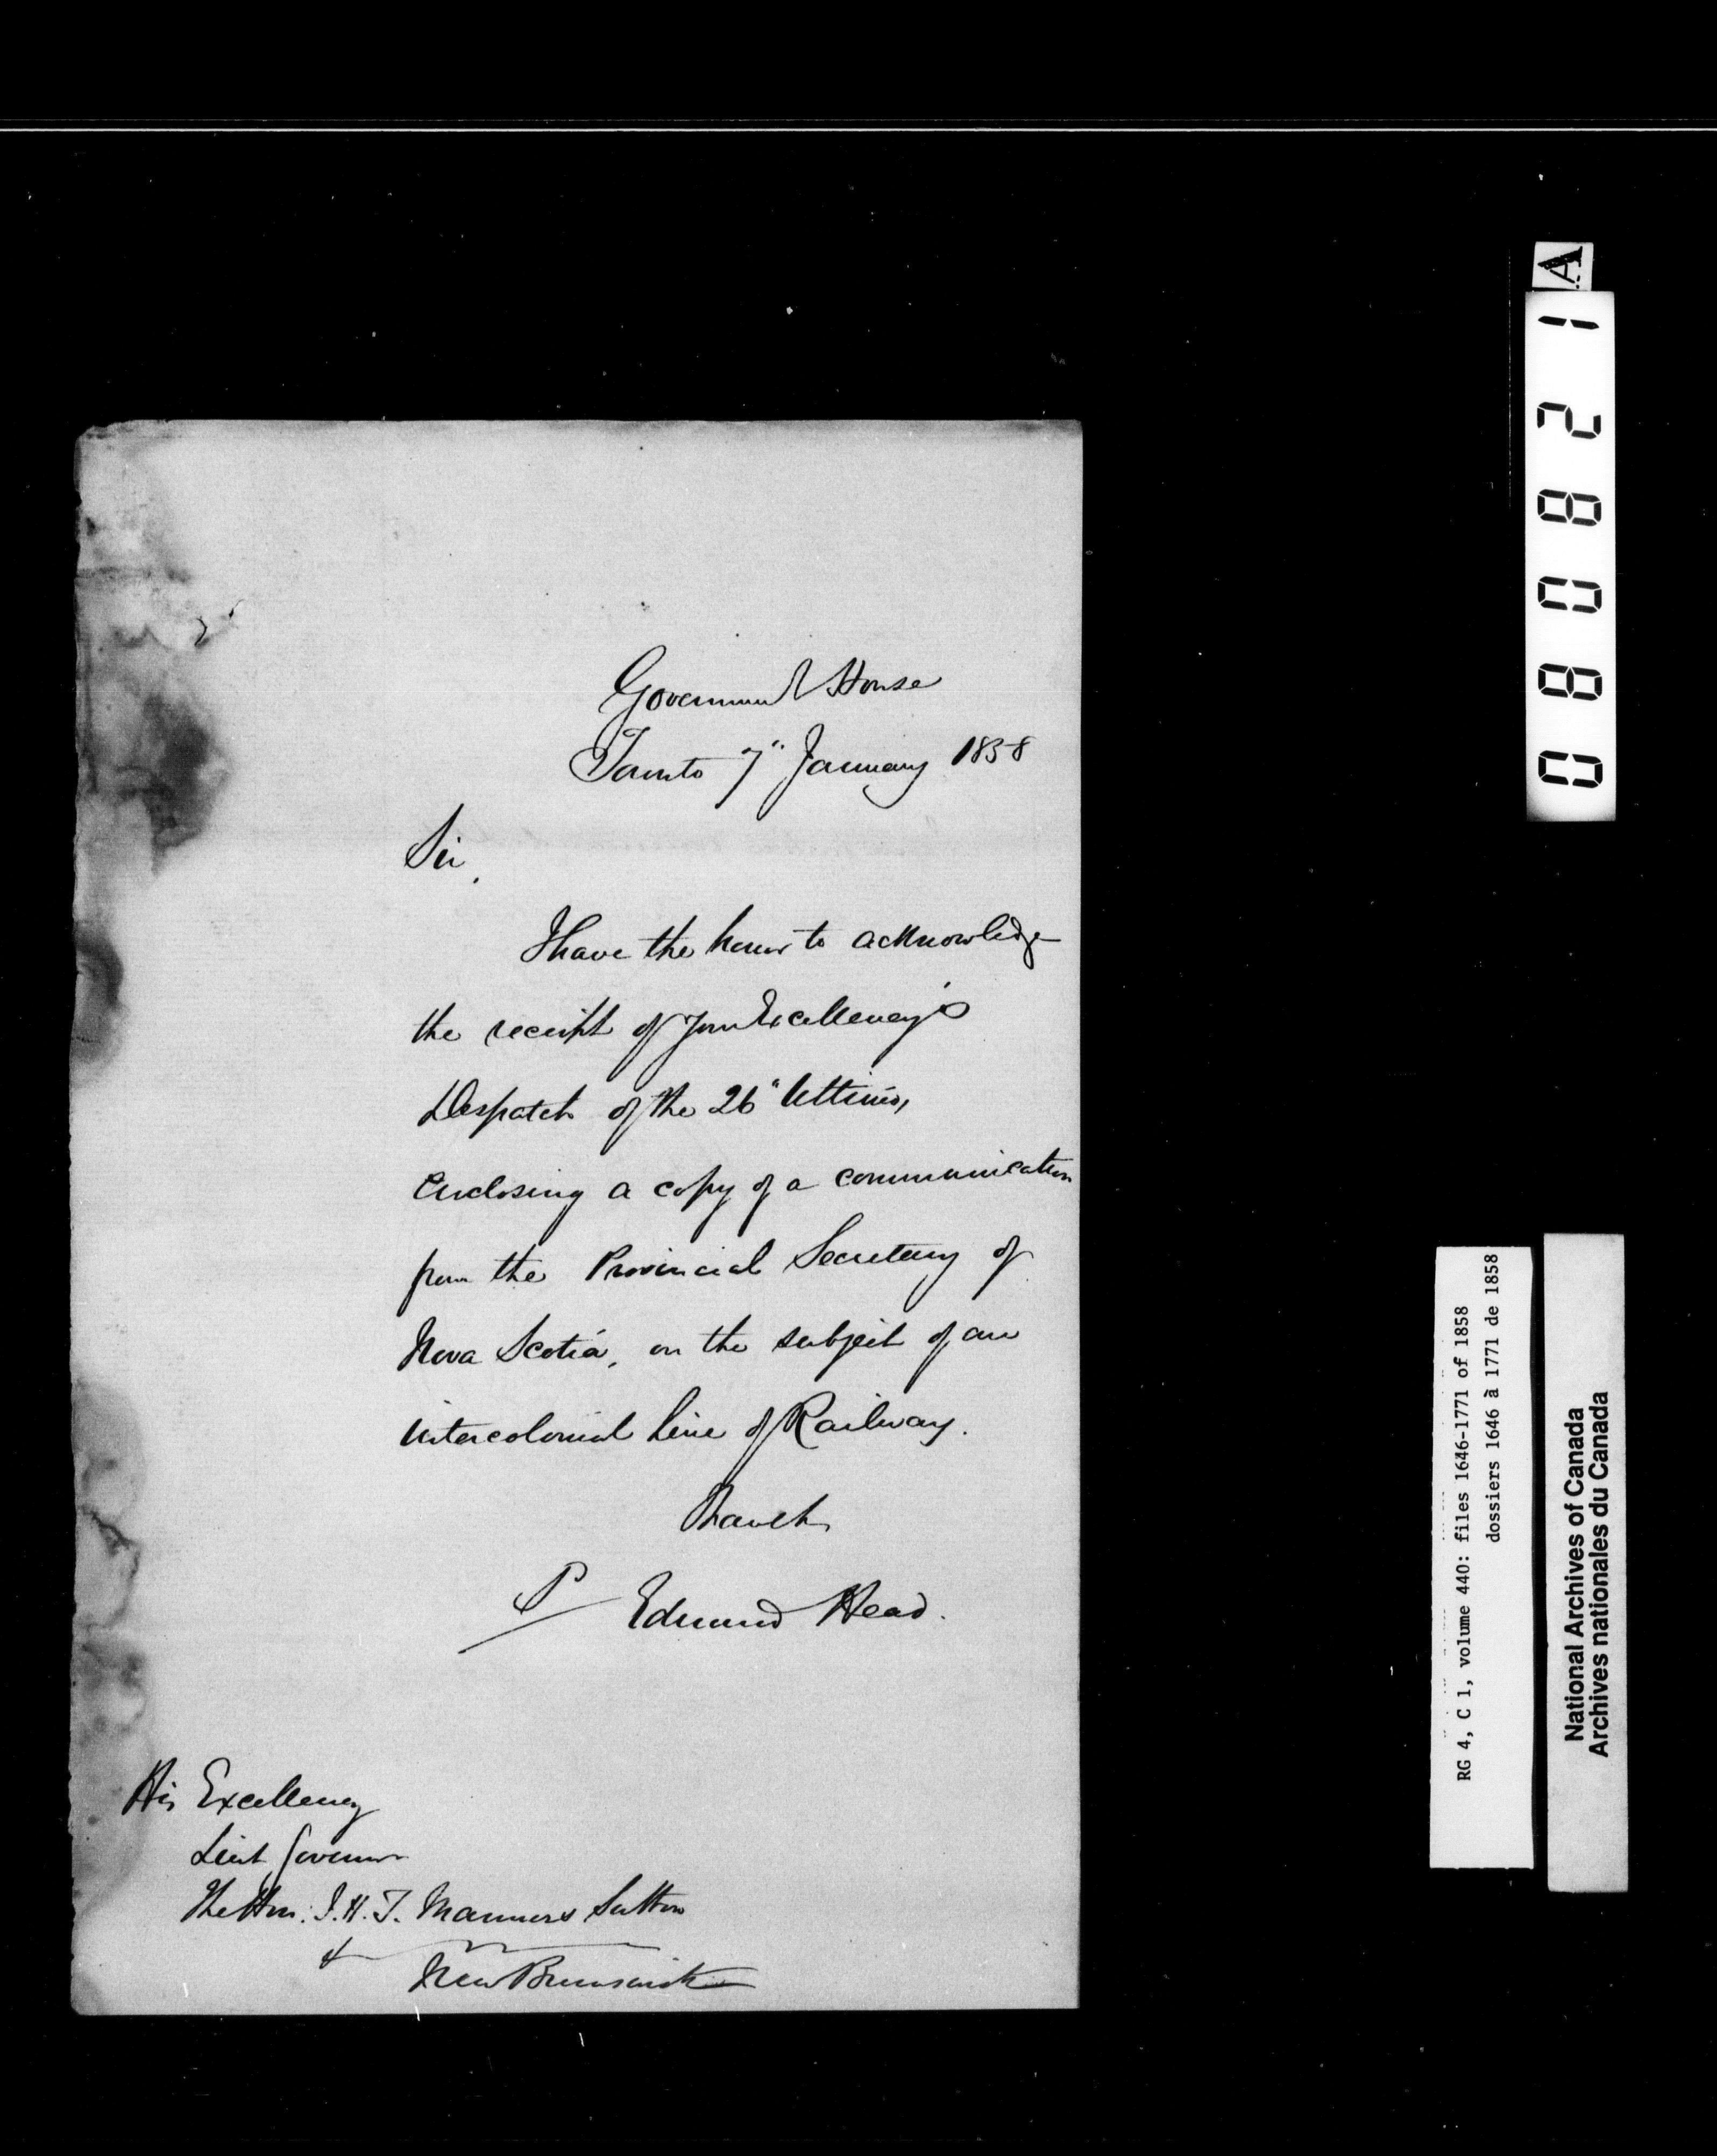 Government House
Toronto 7" January 1858
Sir,
I have the honor to acknowledge
the receipt of Your Excellency's
Despatch of the 26" Ultimo,
Enclosing a copy of a communication
from the Provincial Secretary of
Nova Scotia, on the subject of an
intercolonial line of Railway.
I have &c
Edmund Head.
His Excellency
Lieut Governor
The Hon. J. H. T. Manners Sutton
&
New Brunswick
A
0080821
RG 4, C 1, volume 440: files 1646-1771 of 1858
dossiers 1646 à 1771 de 1858
National Archives of Canada
Archives nationales du Canada